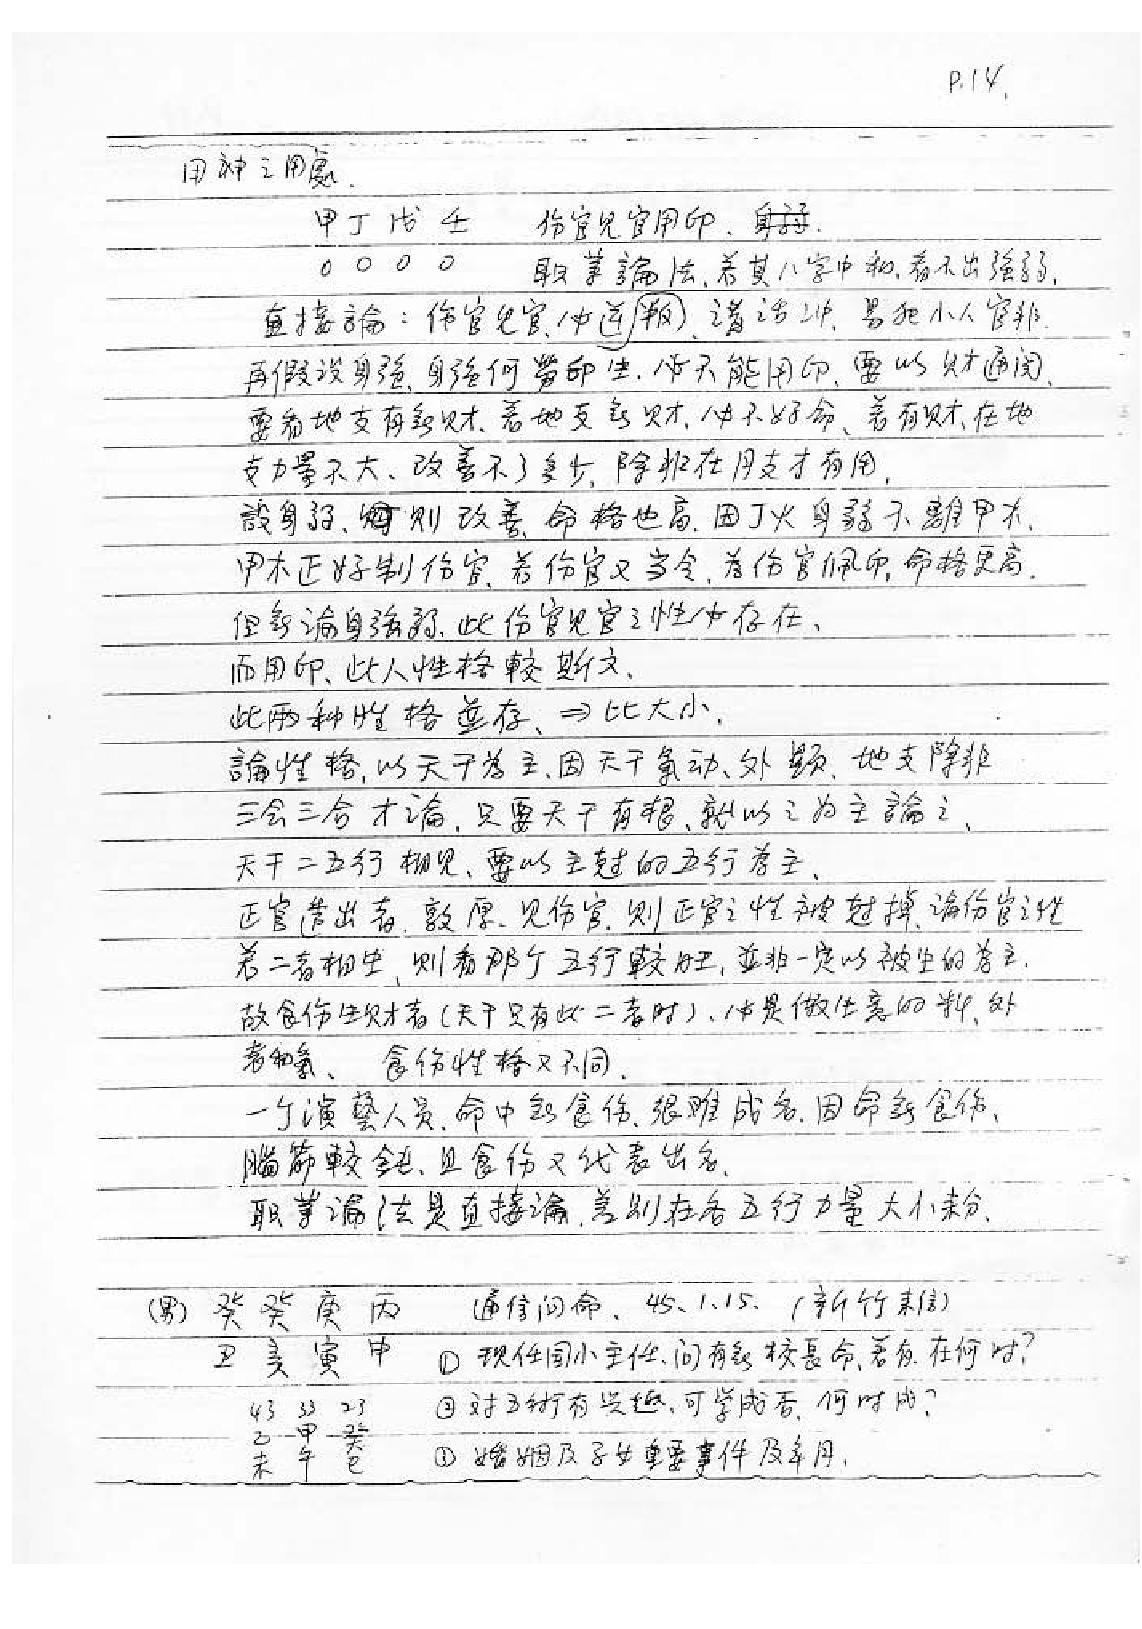 P.14.
用神之用處.
甲丁戊壬 伤官見官用印、身
0 0 0 0 取革論法,若其八字中和,看不出強弱,
直接論:伤官見官,必逆叛,講話冲、易犯小人官非.
再假設身強,身強何勞印生.必不能用印,要以財通関,
要看地支有無財.若地支無財,必不好命、若有財,在地
支力量不大、改善不了多少,除非在月支才有用,
設身弱、則改善,命格也高,因丁火身弱不離甲木,
甲木正好制伤官,若伤官又当令,为伤官佩印,命格更高.
但無論身強弱,此伤官見官之性必存在、
而用印、此人性格較斯文、
此两种性格並存、⇒比大小.
論性格,以天干为主、因天干氣动、外顯、地支除非
三会三合才論,只要天干有根、就以之为主論之、
天干二五行相見、要以主尅的五行为主、
正官透出者,敦厚、見伤官,則正官之性被尅掉,論伤官之性
若二者相生,則看那个五行較旺,並非一定以被生的为主.
故食伤生財者(天干只有此二者时)、必是做生意的料,外
表和氣、 食伤性格又不同.
一个演藝人員,命中無食伤,很难成名,因命無食伤、
腦筋較鈍、且食伤又代表出名.
取革論法是直接論,差別在各五行力量大小耒分.
(男) 癸癸庚丙 通信问命、45.1.15.(新竹来信)
丑亥寅申 ① 现任国小主任、问有無校長命,若有.在何时?
43 33 23 ② 对五術有兴趣、可学成否,何时成?
乙 甲 癸
未 午 巳 ③ 婚姻及子女重要事件及年月.